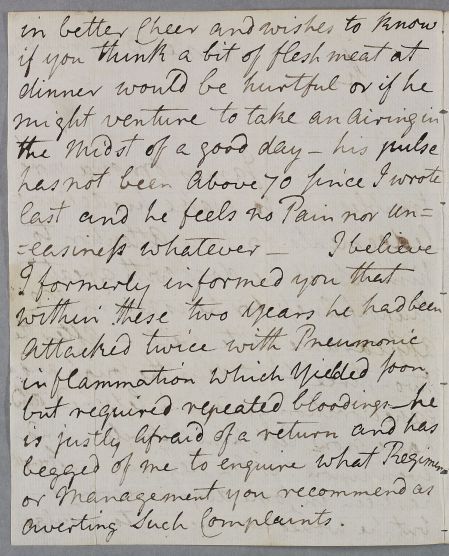 in better Cheer and wishes to know
if you think a bit of flesh meat at
dinner would be hurtful or if he
might venture to take an airing in
the Midst of a good day – his pulse
has not been Above 70 since I wrote
last and he feels no Pain nor un=
=easiness whatever – I believe
I formerly informed you that
within these two years he had been
Attacked twice with Pneumonic
inflammation which yielded soon
but required repeated bloodings – he
is justly Afraid of a return and has
begged of me to enquire what Regimen
or Management you recommend as
averting Such Complaints.